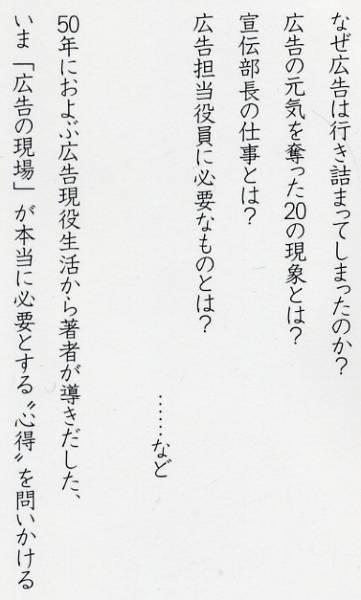 なぜ広告は行き詰まってしまったのか?
広告の元気を奪った20の現象とは?
宣伝部長の仕事とは?
広告担当役員に必要なものとは?
……など
50年におよぶ広告現役生活から著者が導きだした、
いま「広告の現場」が本当に必要とする〝心得〟を問いかける